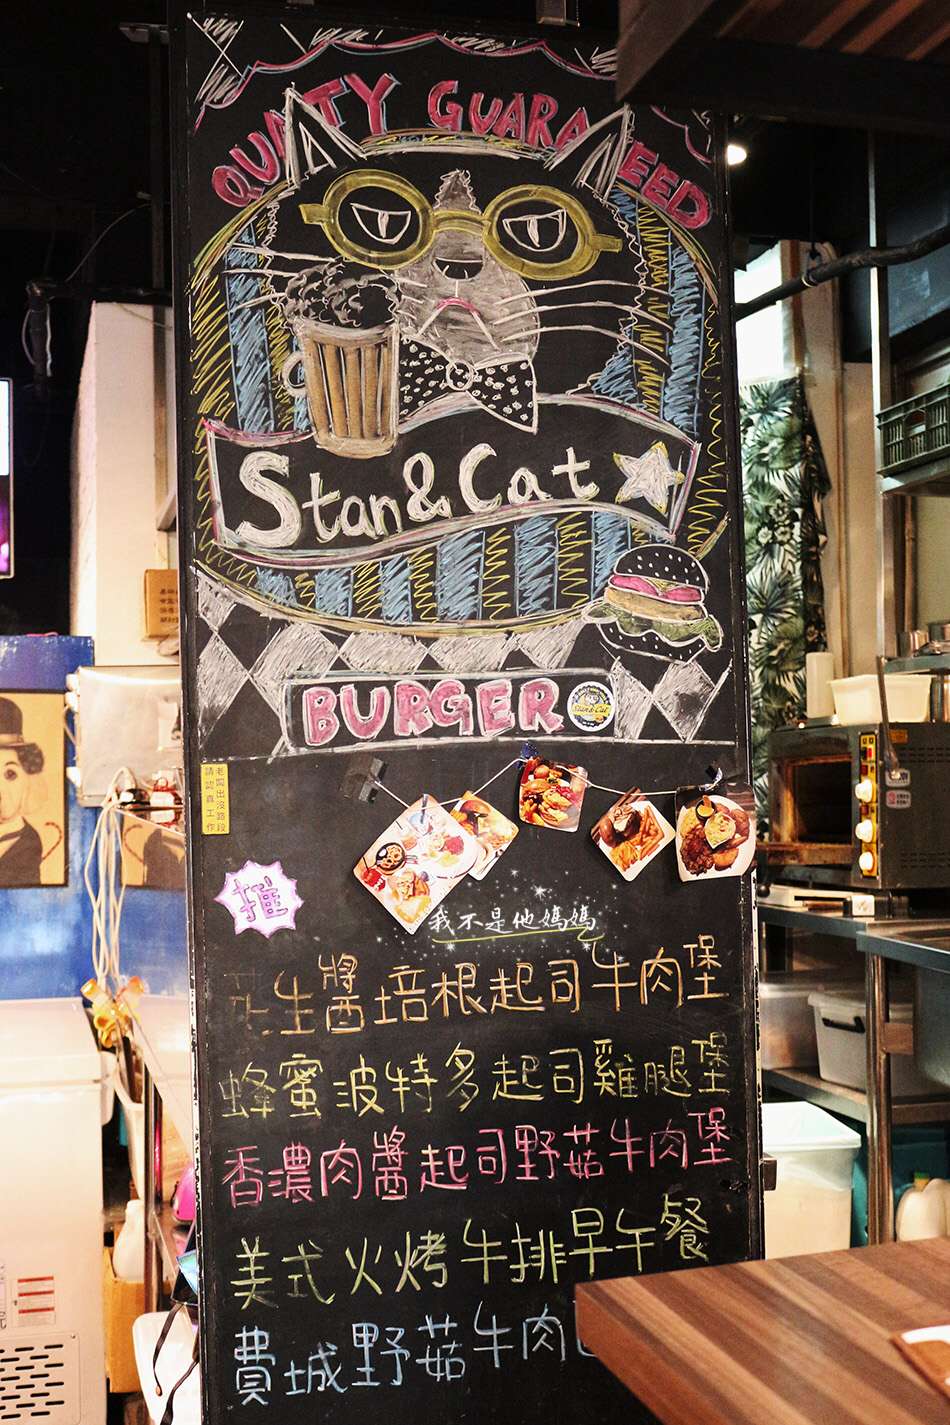 QUALITY GUARANTEED
Stan&Cat
BURGER
Stan&Cat
老闆出沒路段
請認真工作
推
我不是他媽媽
花生醬培根起司牛肉堡
蜂蜜波特多起司雞腿堡
香濃肉醬起司野菇牛肉堡
美式火烤牛排早午餐
費城野菇牛肉